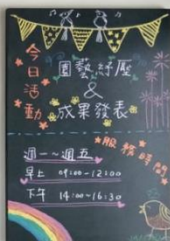 今日活動
園藝紓壓
&
成果發表
服務時間
週一~週五
早上 09:00-12:00
下午 14:00~16:30